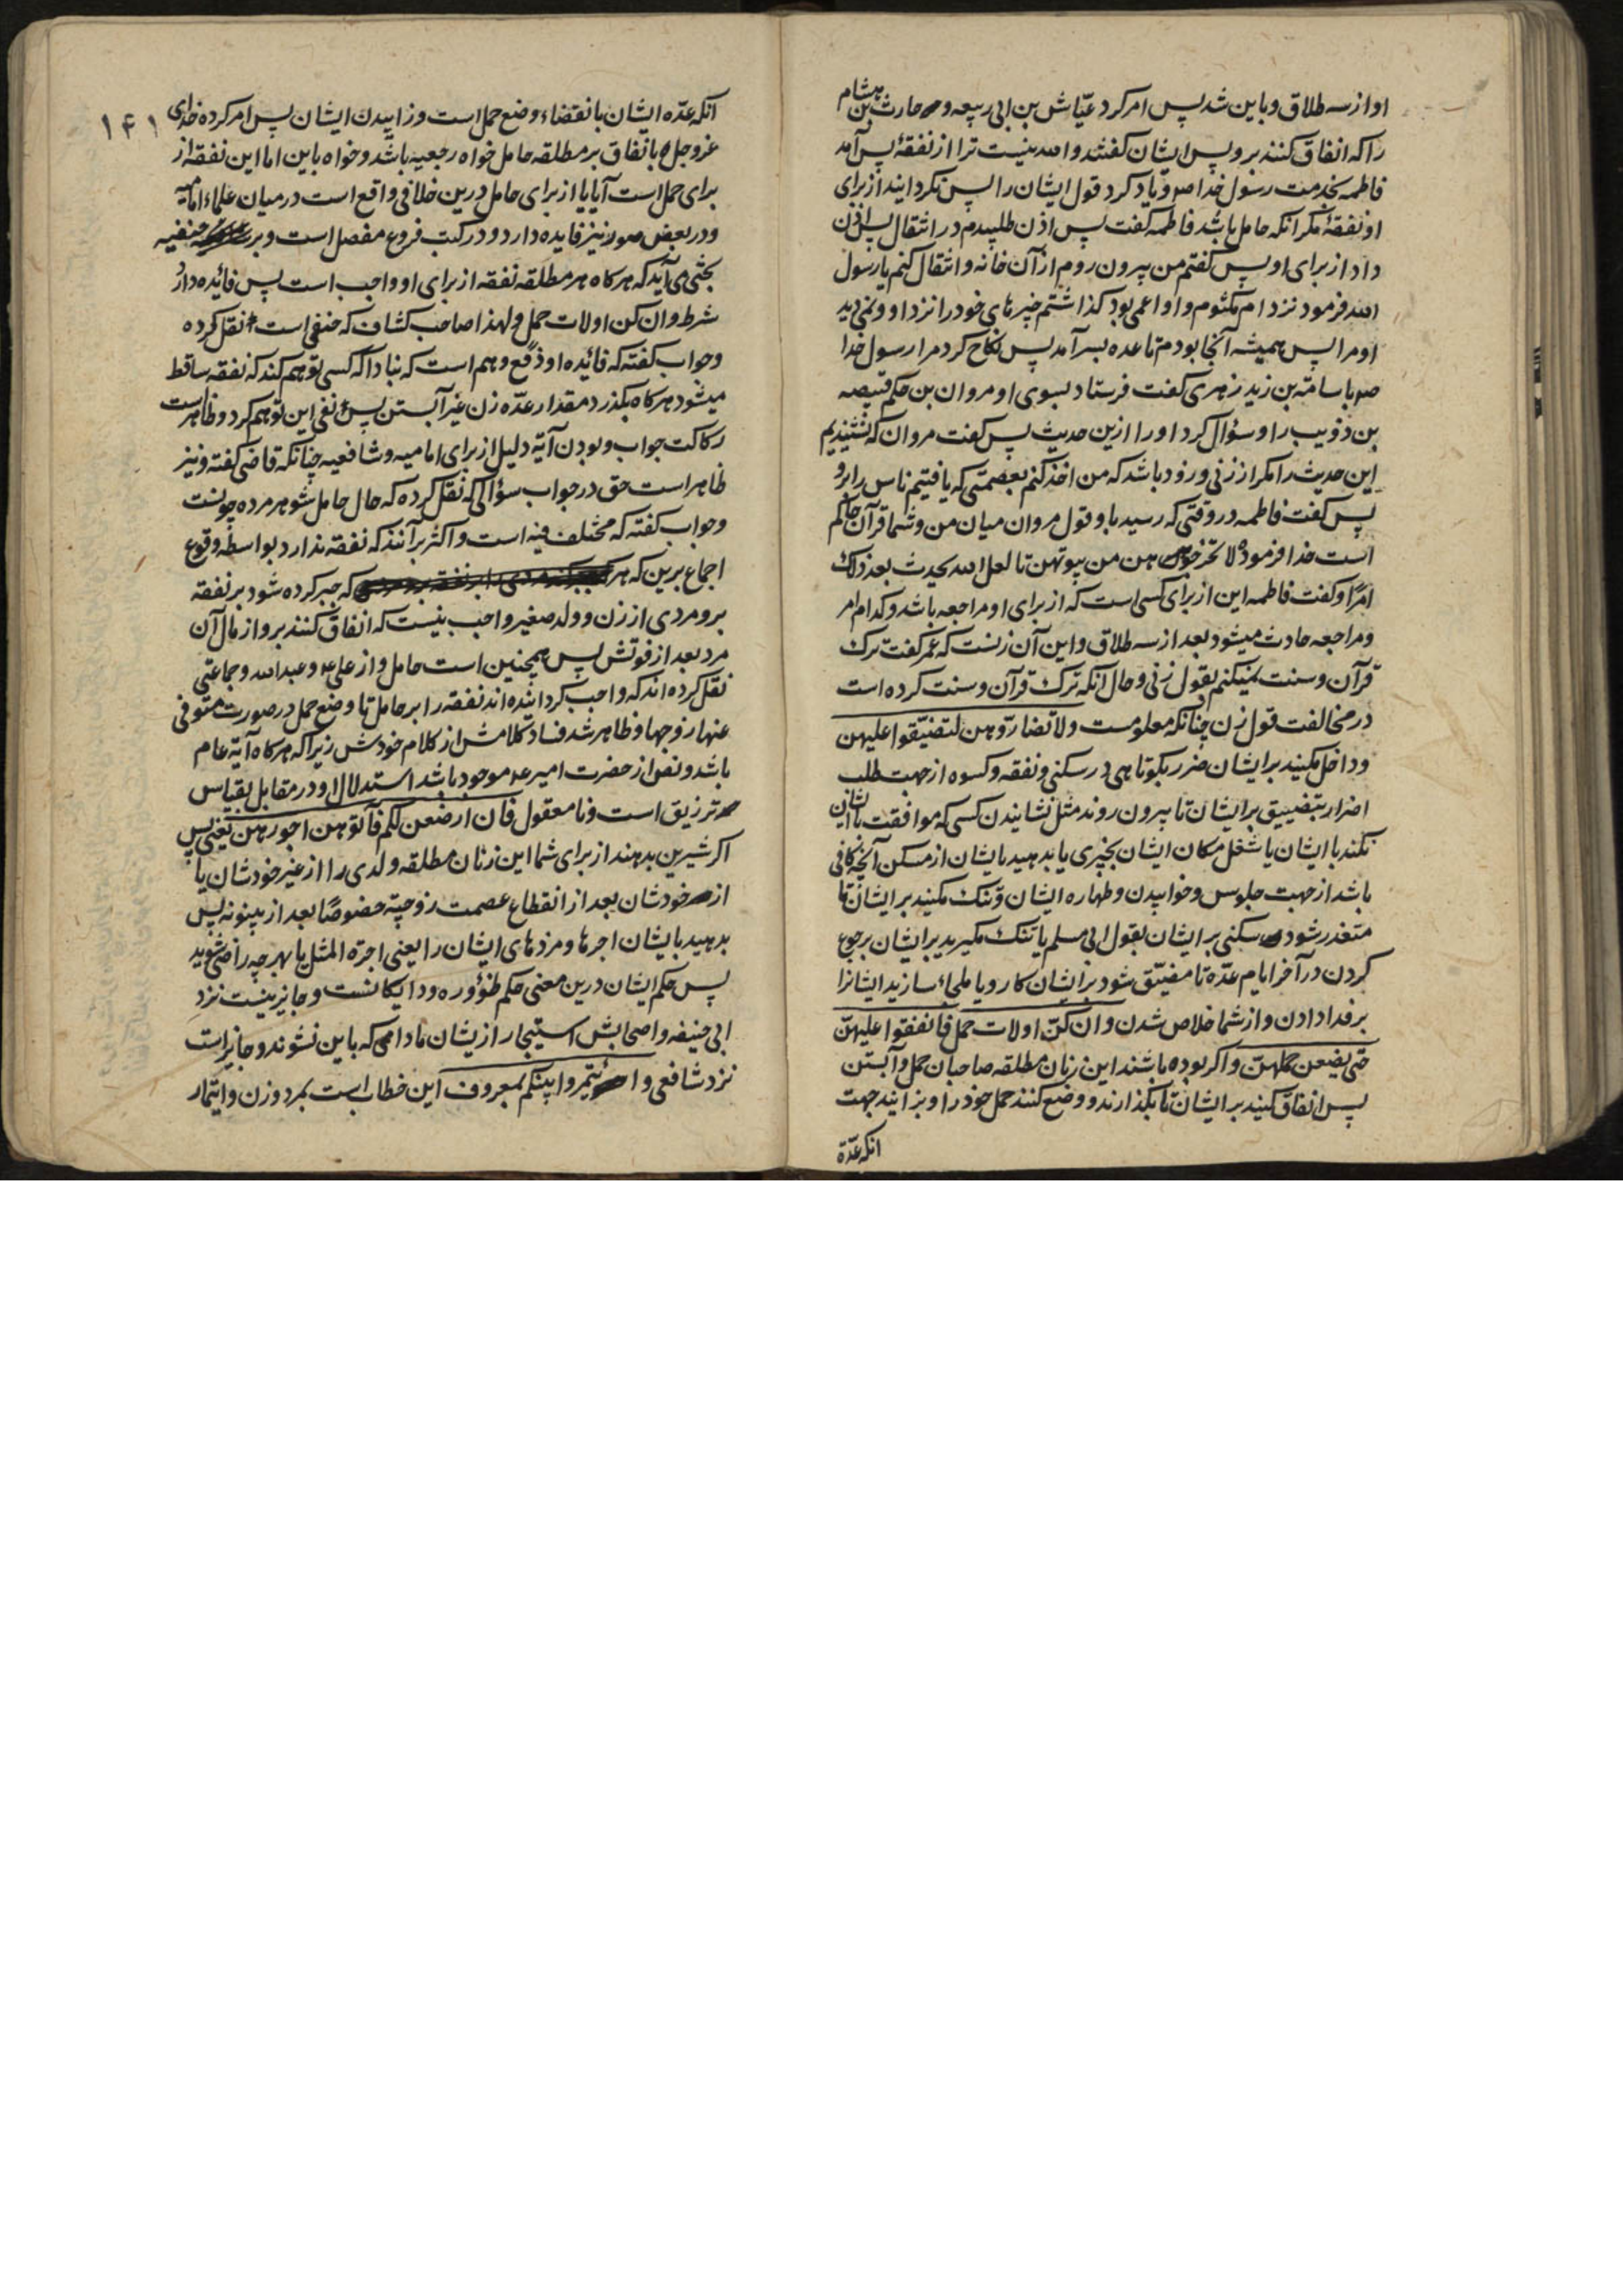 او از سه طلاق و باین شد پس امر کرد عیّاش بن ابی ربیعه و حارث بن هشام
را که انفاق کنند برو پس ایشان گفتند والله نیست ترا از نفقهٔ پس آمد
فاطمه بخدمت رسول خدا صم و یاد کرد قول ایشان را پس نکردانید از برای
او نفقهٔ مکر انکه حامل باشد فاطمه کفت پس اذن طلبیدم در انتقال پس اذن
داد از برای او پس کفتم من بیرون روم از آن خانه و انتقال کنم یا رسول
الله فرمود نزد ام مکتوم و او اعمی بود کذاشتم چیزهای خود را نزد او و نمی دید
او مرا پس همیشه آنجا بودم تا عده بسر آمد پس نکاح کرد مرا رسول خدا
صم باسامة بن زید زهری کفت فرستاد بسوی او مروان بن حکم قبیصه
بن ذویب را و سؤال کرد او را ازین حدیث پس کفت مروان که نشنیدیم
این حدیث را مکر از زنی و زود باشد که من اخذ کنم بعصمتی که یافتیم ناس را برو
پس کفت فاطمه در وقتی که رسید باو قول مروان میان من و شما قرآن حاکم
است خدا فرموده لا تخرجوهن من بیوتهن تا لعل الله یحدث بعد ذلک
امرًا و کفت فاطمه این از برای کسی است که از برای او مراجعه باشد و کدام امر
و مراجعه حادث میشود بعد از سه طلاق و این آن زنست که عمر کفت ترک
قرآن و سنت نمیکنم بقول زنی و حال آنکه ترک قرآن و سنت کرده است
در مخالفت قول زن چنانکه معلومست ولا تضارّوهن لتضیّقوا علیهن
و داخل مکنید بر ایشان ضرر بکوتاهی در سکنی و نفقه و کسوه از جهت طلب
اضرار بتضییق بر ایشان تا بیرون روند مثل نشانیدن کسی که موافقت با ایشان
نکند با ایشان یا شغل مکان ایشان بچیزی یا بدهید بایشان از مسکن آنچه کافی
باشد از جهت جلوس و خوابیدن و طهاره ایشان و تنک مکنید بر ایشان تا
متعذر شود سکنی بر ایشان بقول ابی مسلم یا تنک مکیرید بر ایشان برجوع
کردن در آخر ایام عدّه تا مضیّق شود بر ایشان کار و یا ملجاء سازید ایشانرا
بر فدا دادن و از شما خلاص شدن وان کنّ اولات حمل فانفقوا علیهنّ
حتی یضعن حملهنّ و اکر بوده باشند این زنان مطلقه صاحبان حمل و آبستن
پس انفاق کنید بر ایشان تا بکذارند و وضع کنند حمل خود را و بزایند جهت
انکه عدّة
۱۴۱
انکه عدّه ایشان بانقضاء وضع حمل است و زاییدن ایشان پس امر کرده خدای
عزوجل باتفاق بر مطلقه حامل خواه رجعیه باشد و خواه باین اما این نفقه از
برای حمل است آیا یا از برای حامل درین خلافی واقع است در میان علماء امامیه
و در بعض صور نیز فایده دارد و در کتب فروع مفصل است و بر حنفیه
بحثی می آید که هر کاه هر مطلقه نفقه از برای او واجب است پس فائده دارد
شرط وان کن اولات حمل و لهذا صاحب کشاف که حنفی است نقل کرده
و جواب کفته که فائده او دفع وهم است که نباداکه کسی توهم کند که نفقه ساقط
میشود هر کاه بکذرد مقدار عدّه زن غیر آبستن پس نفی این توهم کرد و ظاهر است
رکاکت جواب و بودن آیة دلیل از برای امامیه و شافعیه چنانکه قاضی کفته و نیز
ظاهر است حق در جواب سؤالی که نقل کرده که حال حامل شوهر مرده چونست
و جواب کفته که مختلف فیه است و اکثر برآنند که نفقه ندارد بواسطه وقوع
اجماع برین که هر که جبر کرده شود بر نفقه
برو مردی از زن و ولد صغیر واجب نیست که انفاق کنند برو از مال آن
مرد بعد از فوتش پس همچنین است حامل و از علی ع و عبدالله و جماعتی
نقل کرده اند که واجب کردانیده اند نفقه را بر حامل تا وضع حمل در صورت متوفی
عنها زوجها و ظاهر شد فساد کلامش از کلام خودش زیرا که هر کاه آیة عام
باشد و نص از حضرت امیر ع موجود باشد استدلال او در مقابل بقیاس
تر زیق است و نامعقول فان ارضعن لکم فآتوهن اجورهن یعنی پس
اکر شیر بن بدهند از برای شما این زنان مطلقه ولدی را از غیر خودشان یا
از خودشان بعد از انقطاع عصمت زوجیّة خصوصًا بعد از بینونه پس
بدهید بایشان اجرها و مزدهای ایشان را یعنی اجرة المثل یا بهر چه راضی شوید
پس حکم ایشان درین معنی حکم ظؤوره و دایکانست و جایز نیست نزد
ابی حنیفه و اصحابش استیجار ازیشان مادامی که باین نشوند و جایز است
نزد شافعی وائتمروا بینکم بمعروف این خطاب است بمرد و زن و ایتمار